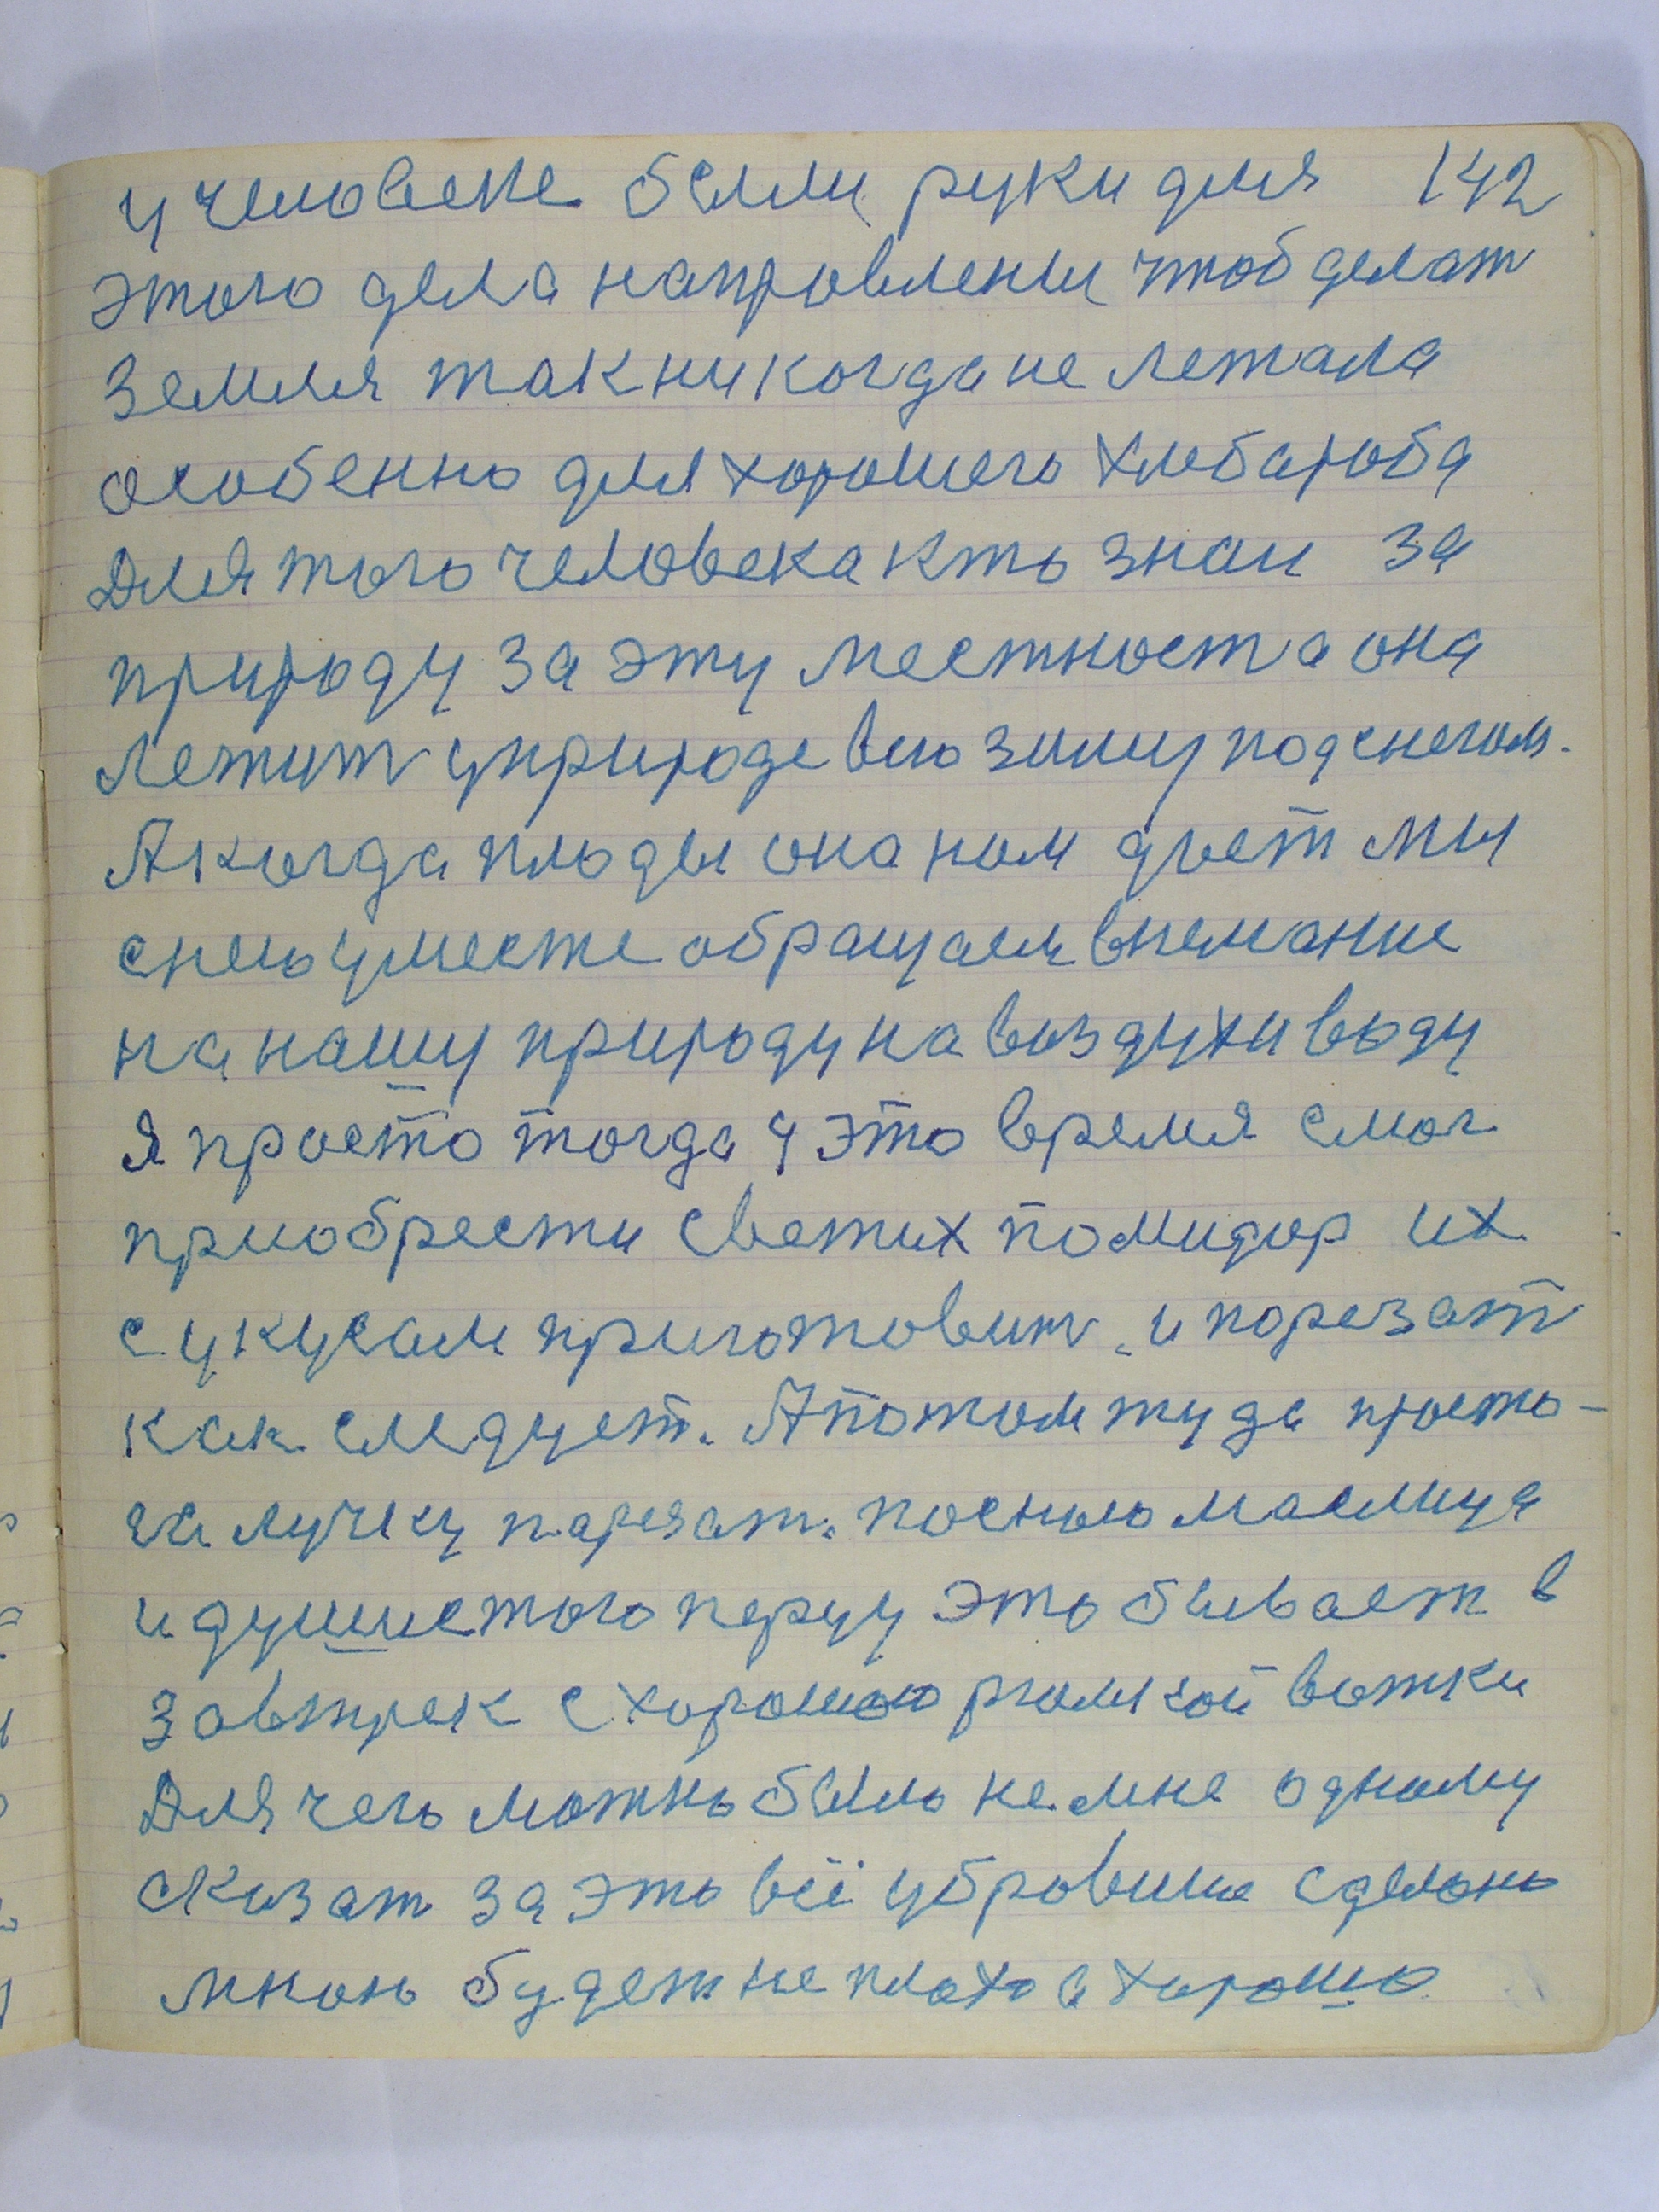 у человеке были руки для 142
этого дела направлены чтоб делат
Земля так никогда не летала
особенно для хорошего хлебароба
Для того человека кто знал за
природу за эту местност а она
Лежит у природе всю зиму под снегом.
А когда плоды она нам дает мы
с нею уместе обращаем внемание
на нашу природу на воздух и воду
я просто тогда у это время смог
приобрести свежих помидор их
с укусам приготовит, и порезат
как следует. А потом туда просто-
га лучку парезат. посного маслица
и душистого перцу это бывает в
завтрек с хорошою рюмкой вотки
Для чего можно было не мне одному
сказат за это всё убровшие сделано
мною будет не плохо а харошо